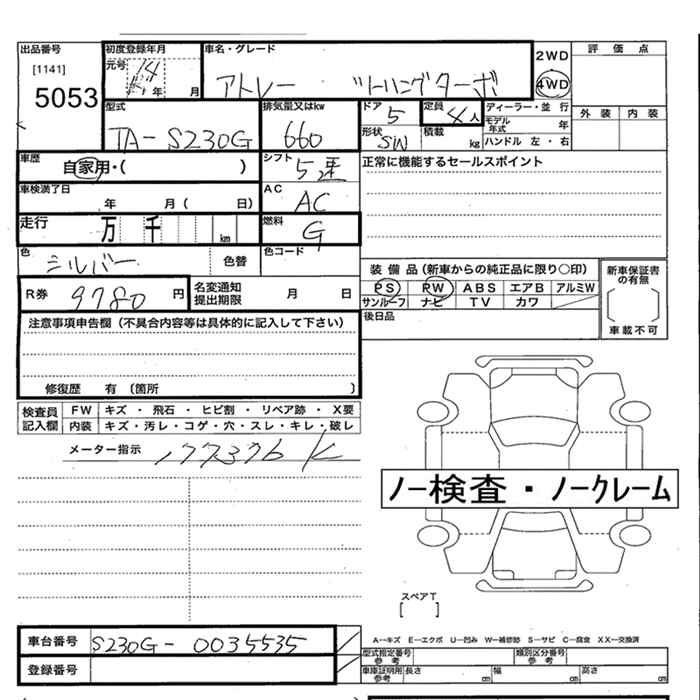 出品番号 初度登録年月 車名・グレード 2WD 評 価 点
[1141] 元号 14 年 月 アトレー ツーリングターボ 4WD
5053 外 装 内 装
型式 排気量又はkw ドア 5 定員 4人 ディーラー・並 行
TA-S230G 660 形状 SW 積載 kg モデル年式 年
ハンドル 左・右
車歴 自家用・( ) シフト 5速 正常に機能するセールスポイント
車検満了日 年 月( 日) AC AC
走行 万 千 km 燃料 G
色 シルバー 色替 色コード
装 備 品 (新車からの純正品に限り○印) 新車保証書の有無
R券 9780 円 名変通知提出期限 月 日 PS PW ABS エアB アルミW
サンルーフ ナビ TV カワ
車載不可
注意事項申告欄 (不具合内容等は具体的に記入して下さい) 後日品
修復歴 有 (箇所 )
検査員記入欄 FW キズ ・ 飛石 ・ ヒビ割 ・ リペア跡 ・ X要
内装 キズ・汚レ・コゲ・穴・スレ・キレ・破レ
メーター指示 177376 K
ノー検査・ノークレーム
スペアT
[ ]
車台番号 S230G-0035535 A―キズ E―エクボ U―凹み W―補修跡 S―サビ C―腐食 XX―交換済
型式指定番号 参考 類別区分番号 参考
登録番号 車庫証明用 参考 長さ cm 幅 cm 高さ cm